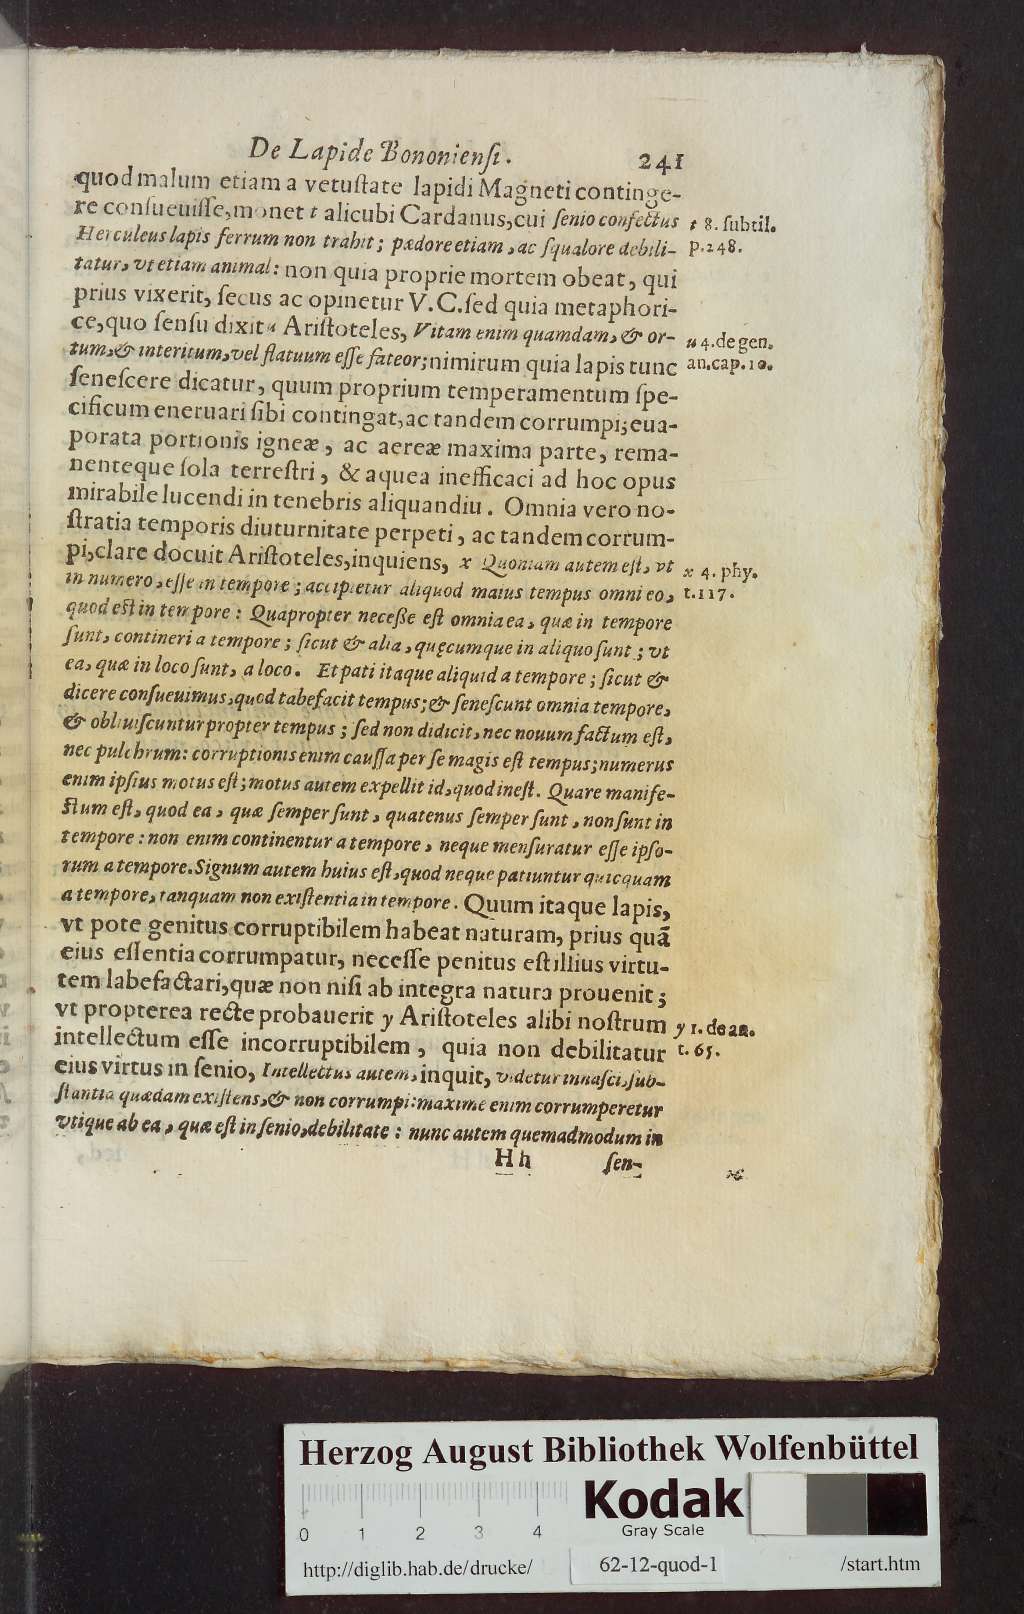 De Lapide Bononiensi. 241
quod malum etiam a vetuſtate lapidi Magneti continge-
re conſueuiſſe, monet t alicubi Cardanus, cui ſenio confectus
t 8. ſubtil.
Herculeus lapis ferrum non trahit; pædore etiam, ac ſqualore debili-
p. 248.
tatur, vt etiam animal: non quia proprie mortem obeat, qui
prius vixerit, ſecus ac opinetur V.C. ſed quia metaphori-
ce, quo ſenſu dixit u Ariſtoteles, Vitam enim quamdam, & or-
u 4. de gen.
tum, & interitum, vel flatuum eſſe fateor; nimirum quia lapis tunc
an. cap. 10.
ſeneſcere dicatur, quum proprium temperamentum ſpe-
cificum eneruari ſibi contingat, ac tandem corrumpi; eua-
porata portionis igneæ, ac aereæ maxima parte, rema-
nenteque ſola terreſtri, & aquea inefficaci ad hoc opus
mirabile lucendi in tenebris aliquandiu. Omnia vero no-
ſtratia temporis diuturnitate perpeti, ac tandem corrum-
pi, clare docuit Ariſtoteles, inquiens, x Quoniam autem eſt, vt
x 4. phy.
in numero, eſſe in tempore; accipietur aliquod maius tempus omni eo,
t. 117.
quod eſt in tempore: Quapropter neceſſe eſt omnia ea, quæ in tempore
ſunt, contineri a tempore; ſicut & alia, quęcumque in aliquo ſunt; vt
ea, quæ in loco ſunt, a loco. Et pati itaque aliquid a tempore; ſicut &
dicere conſueuimus, quod tabefacit tempus; & ſeneſcunt omnia tempore,
& obliuiſcuntur propter tempus; ſed non didicit, nec nouum factum eſt,
nec pulchrum: corruptionis enim cauſſa per ſe magis eſt tempus; numerus
enim ipſius motus eſt; motus autem expellit id, quod ineſt. Quare manife-
ſtum eſt, quod ea, quæ ſemper ſunt, quatenus ſemper ſunt, non ſunt in
tempore: non enim continentur a tempore, neque menſuratur eſſe ipſo-
rum a tempore. Signum autem huius eſt, quod neque patiuntur quicquam
a tempore, tanquam non exiſtentia in tempore. Quum itaque lapis,
vt pote genitus corruptibilem habeat naturam, prius quã
eius eſſentia corrumpatur, neceſſe penitus eſt illius virtu-
tem labefactari, quæ non niſi ab integra natura prouenit;
vt propterea recte probauerit y Ariſtoteles alibi noſtrum
y 1. de an.
intellectum eſſe incorruptibilem, quia non debilitatur
t. 65.
eius virtus in ſenio, Intellectus autem, inquit, videtur innaſci, ſub-
ſtantia quædam exiſtens, & non corrumpi: maxime enim corrumperetur
vtique ab ea, quæ eſt in ſenio, debilitate: nunc autem quemadmodum in
Hh ſen-
Herzog August Bibliothek Wolfenbüttel
Kodak
Gray Scale
0 1 2 3 4
http://diglib.hab.de/drucke/ 62-12-quod-1 /start.htm